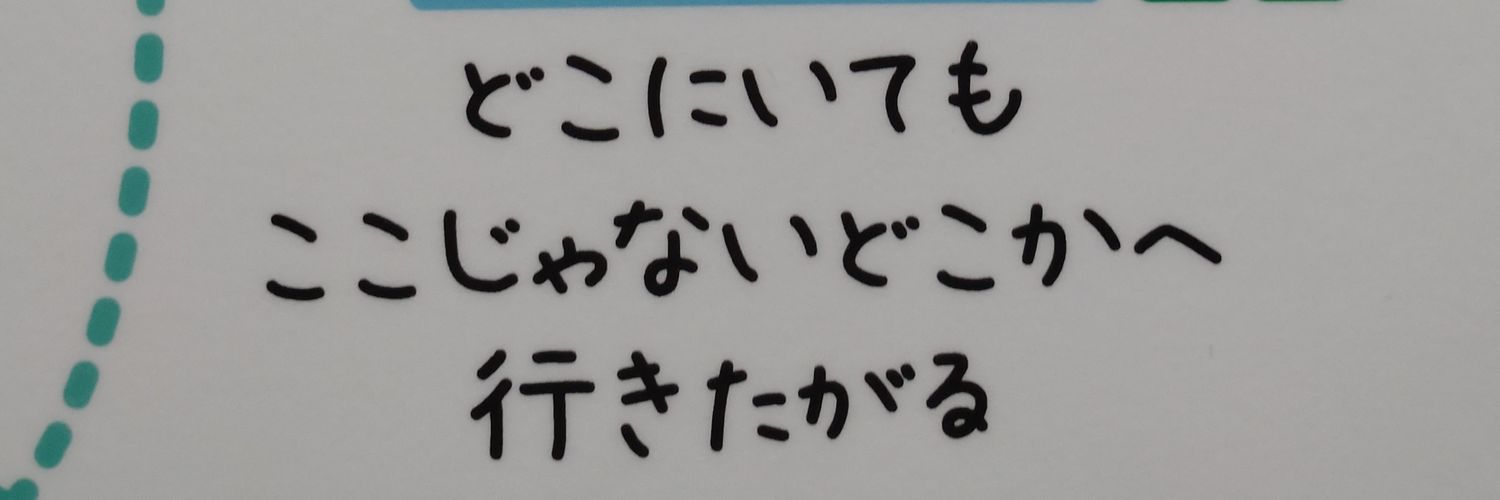 どこにいても
ここじゃないどこかへ
行きたがる